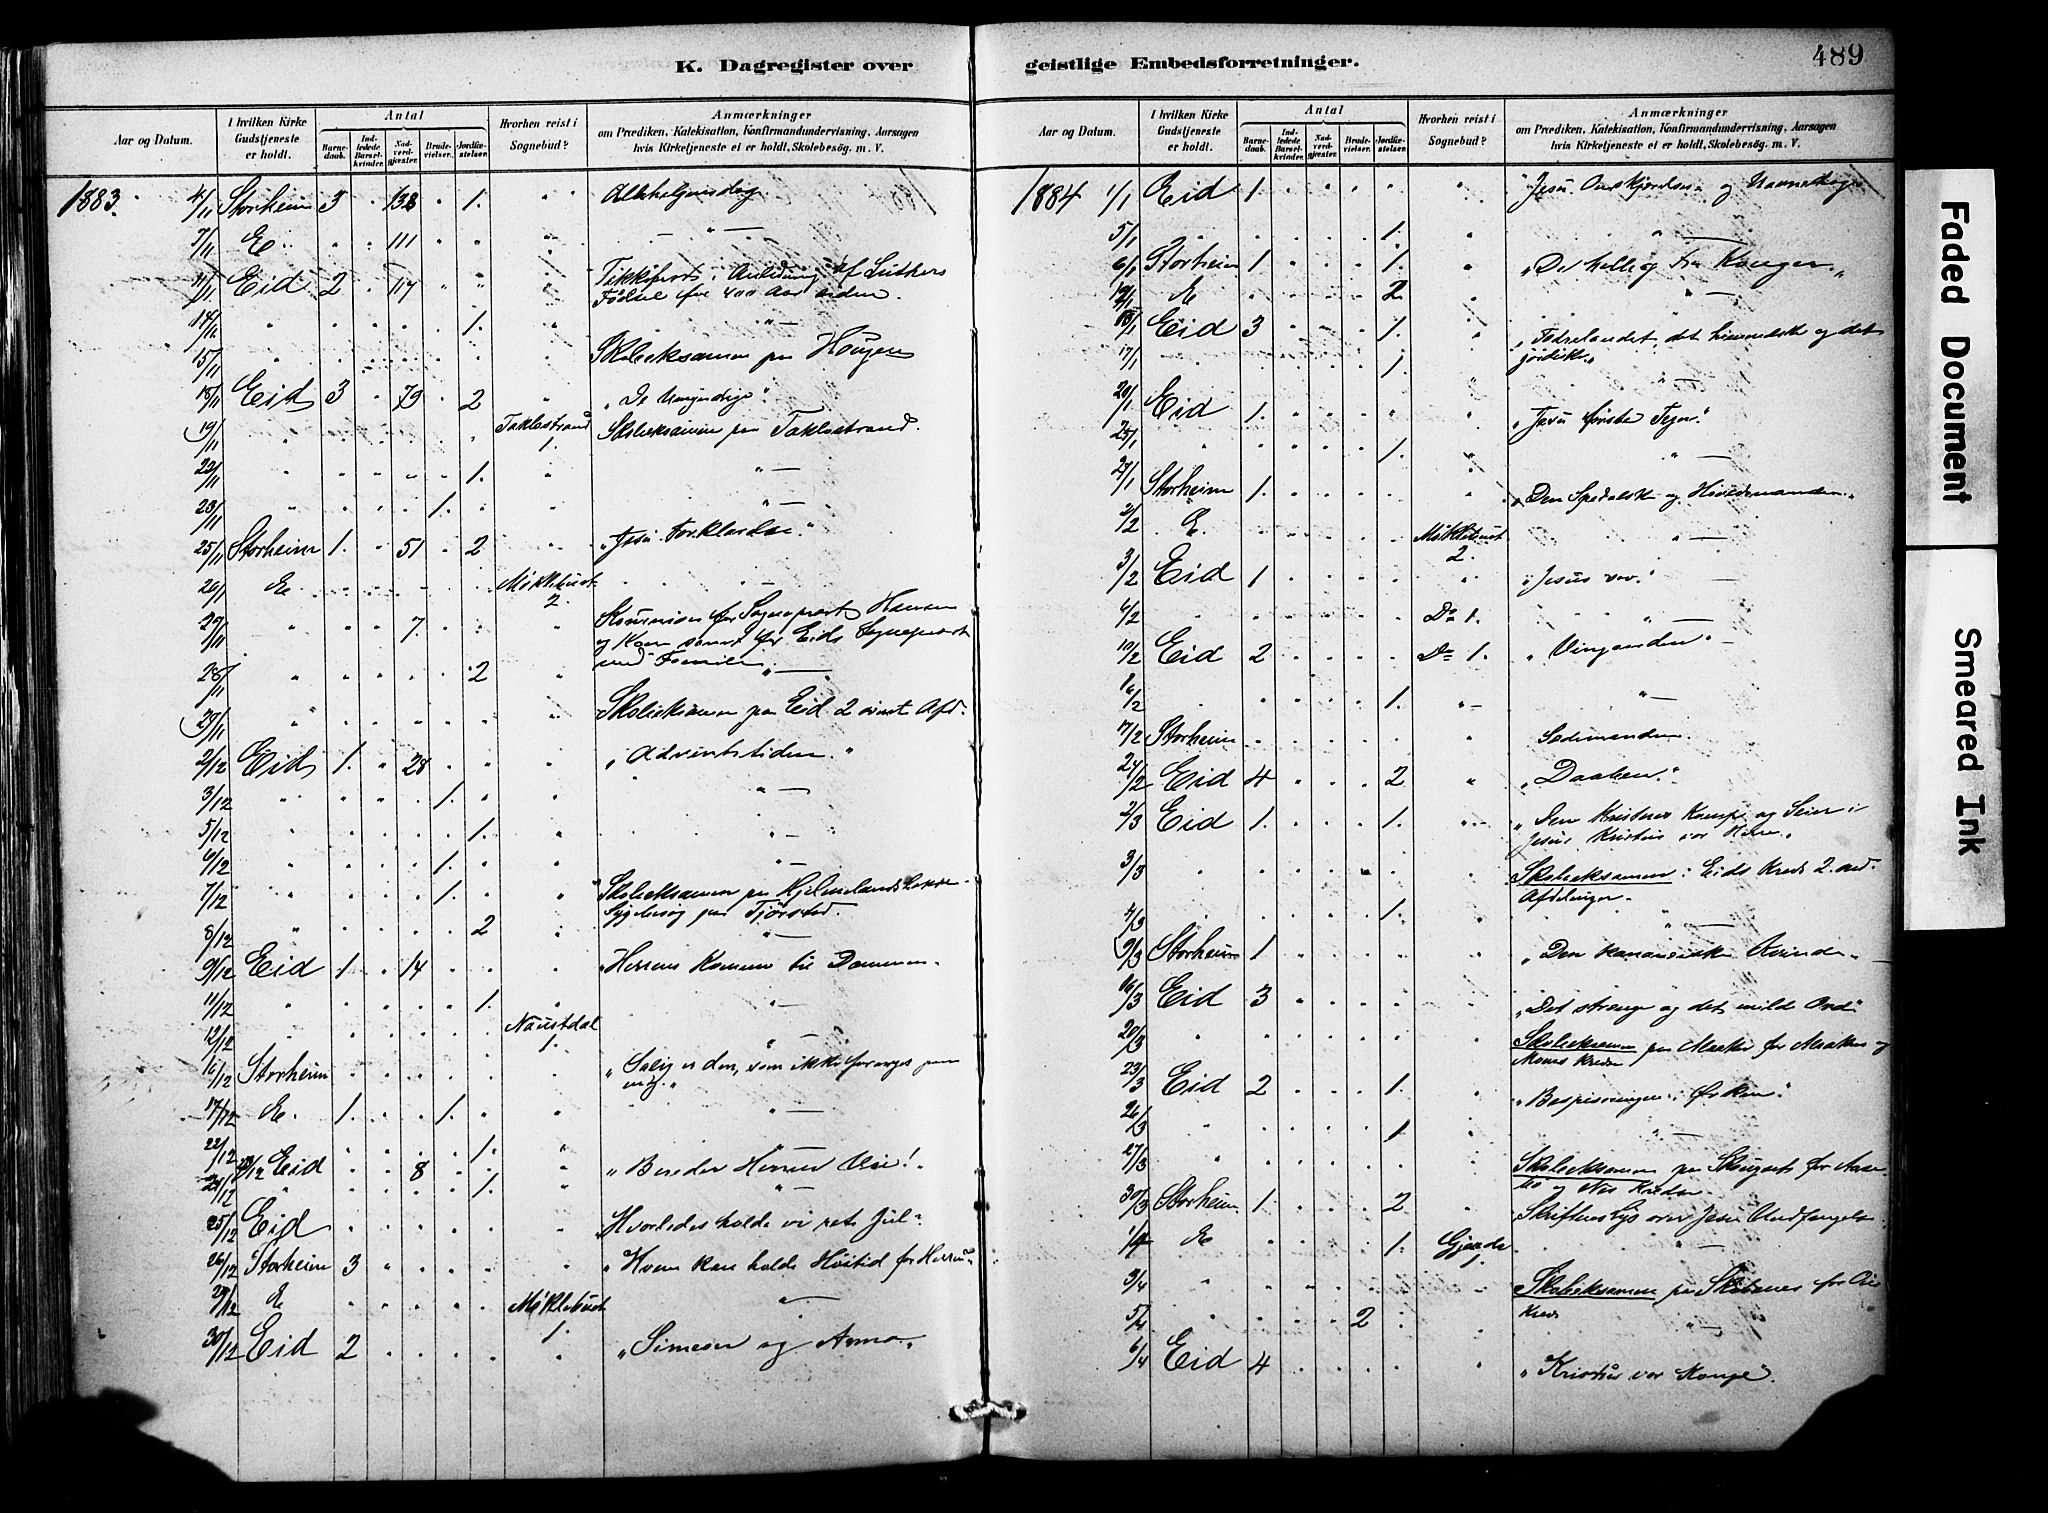 489
K. Dagregister over geistlige Embedsforretninger.
Aar og Datum. I hvilken Kirke Gudstjeneste er holdt. Antal Barnedaab. Indledede Barselkvinder. Nadverdgjester. Brudevielser. Jordfæstelser. Hvorhen reist i Sognebud? Anmærkninger om Prædiken, Katekisation, Konfirmandundervisning, Aarsagen hvis Kirketjeneste ei er holdt, Skolebesøg. m. V.
1883. 4/11 Storheim 3 " 138 " 1. "
7/11 E. " " 111 " " " "
11/11 Eid 2 " 117 " " " i Anledning af Luthers
Fødsel for 400 Aar siden.
14/11 " " " " " 1. " "
15/11 " Skoleeksamen paa Hougen
18/11 Eid 3 " 79 " 2 " "De Umyndige"
19/11 " Taklestrand 1. Skoleeksamen paa Taklestrand.
22/11 " " " " " 1. " "
23/11 " " " " 1. " " "
25/11 Storheim 1. " 51 " 2 " "Jesu Forklarelse."
26/11 E. Myklebust 2.
" " " 7. " " "
og Kone samt for Eids Sognepræst
med Familie
28/11 " " " " " 2 " "
29/11 " Skoleeksamen paa Eid 2
2/12 Eid 1. " 28 " " " "Adventstiden."
3/12 " " " " 1. " " "
5/12 " " " " " 1. " "
6/12 " " " " 1. " " "
7/12 " " " " 1. " " Skoleeksamen paa
Sygebesøg paa
8/12 " " " " " 2 " "
9/12 Eid 1. " 14 " " " "Herrens Komme til Dommen.
11/12 " " " " " 1. " "
12/12 " Naustdal 1. "
16/12 Storheim "Salig er den, som ikke forarges paa
mig."
17/12 E. 1. " " 1. " " "
22/12 " " " " 1. "
23/12 Eid " " 8 " " " "Bereder Herrens Vei!"
24/12 " " " " " 1. " "
25/12 Eid "Hvorledes holde vi ret Jul"
26/12 Storheim 3 " " " " " "Hvem kan holde Høitid for Herren"
E Myklebust 1. "
30/12 Eid 2 " " " " " "Simeon og Anna"
Aar og Datum. I hvilken Kirke Gudstjeneste er holdt. Antal Barnedaab. Indledede Barselkvinder. Nadverdgjester. Brudevielser. Jordfæstelser. Hvorhen reist i Sognebud? Anmærkninger om Prædiken, Katekisation, Konfirmandundervisning, Aarsagen hvis Kirketjeneste ei er holdt, Skolebesøg. m. V.
1884 1/1 Eid 1. " " " " " "Jesu Omskjærelse og Navnedag"
5/1 " " " " " 1. " "
6/1 Storheim 1 " " " 1. " "De hellig Tre Konger."
E " " " " 2 " "
13/1 Eid 3 " " " 1. " "Fædrelandet, det himmelske og det
jordiske"
17/1 " " " " 1. " "
20/1 Eid 1. " " " " " "Jesu første Tegn."
1. " "
27/1 Storheim 1. " " " " " "Den Spedalske og Høvedsmanden."
2/2 E. Myklebust 2. "
3/2 Eid 1 " " " " " "Jesus sov."
6/2 " Do 1. "
10/2 Eid 2 " " " " Do 1. "Vingaarden"
16/2 " " " " " 1. " "
17/2 Storheim Sædemanden.
24/2 Eid 4 " " " 2 " "Daaben."
2/3 Eid 1. " " " 1. " "Den Kristnes Kamp og Seier i
Jesus Kristus vor Herre."
3/3 " Skoleeksamen i Eids Kreds 2
Afdelinger.
4/3 " " " " 1. " "
9/3 Storheim 1 " " " " " "Den kananæiske Kvinde"
16/3 Eid 3 " " " " " "Det strenge og det milde Ord"
20/3 " Skoleeksamen paa
Kreds
23/3 Eid 2 " " " 1. " "Bespisningen i Ørken."
26/3 " " " " " 1 " "
27/3 " Skoleeksamen paa
Kreds.
30/3 Storheim 1. " " " 2 "
1/4 E " " " " 1. 1. "
3/4 " Skoleeksamen paa
Kreds
5/4 " " " " 2 " "
6/4 Eid 4 " " " " " "Kristus vor Konge".
Faded Document
Smeared Ink